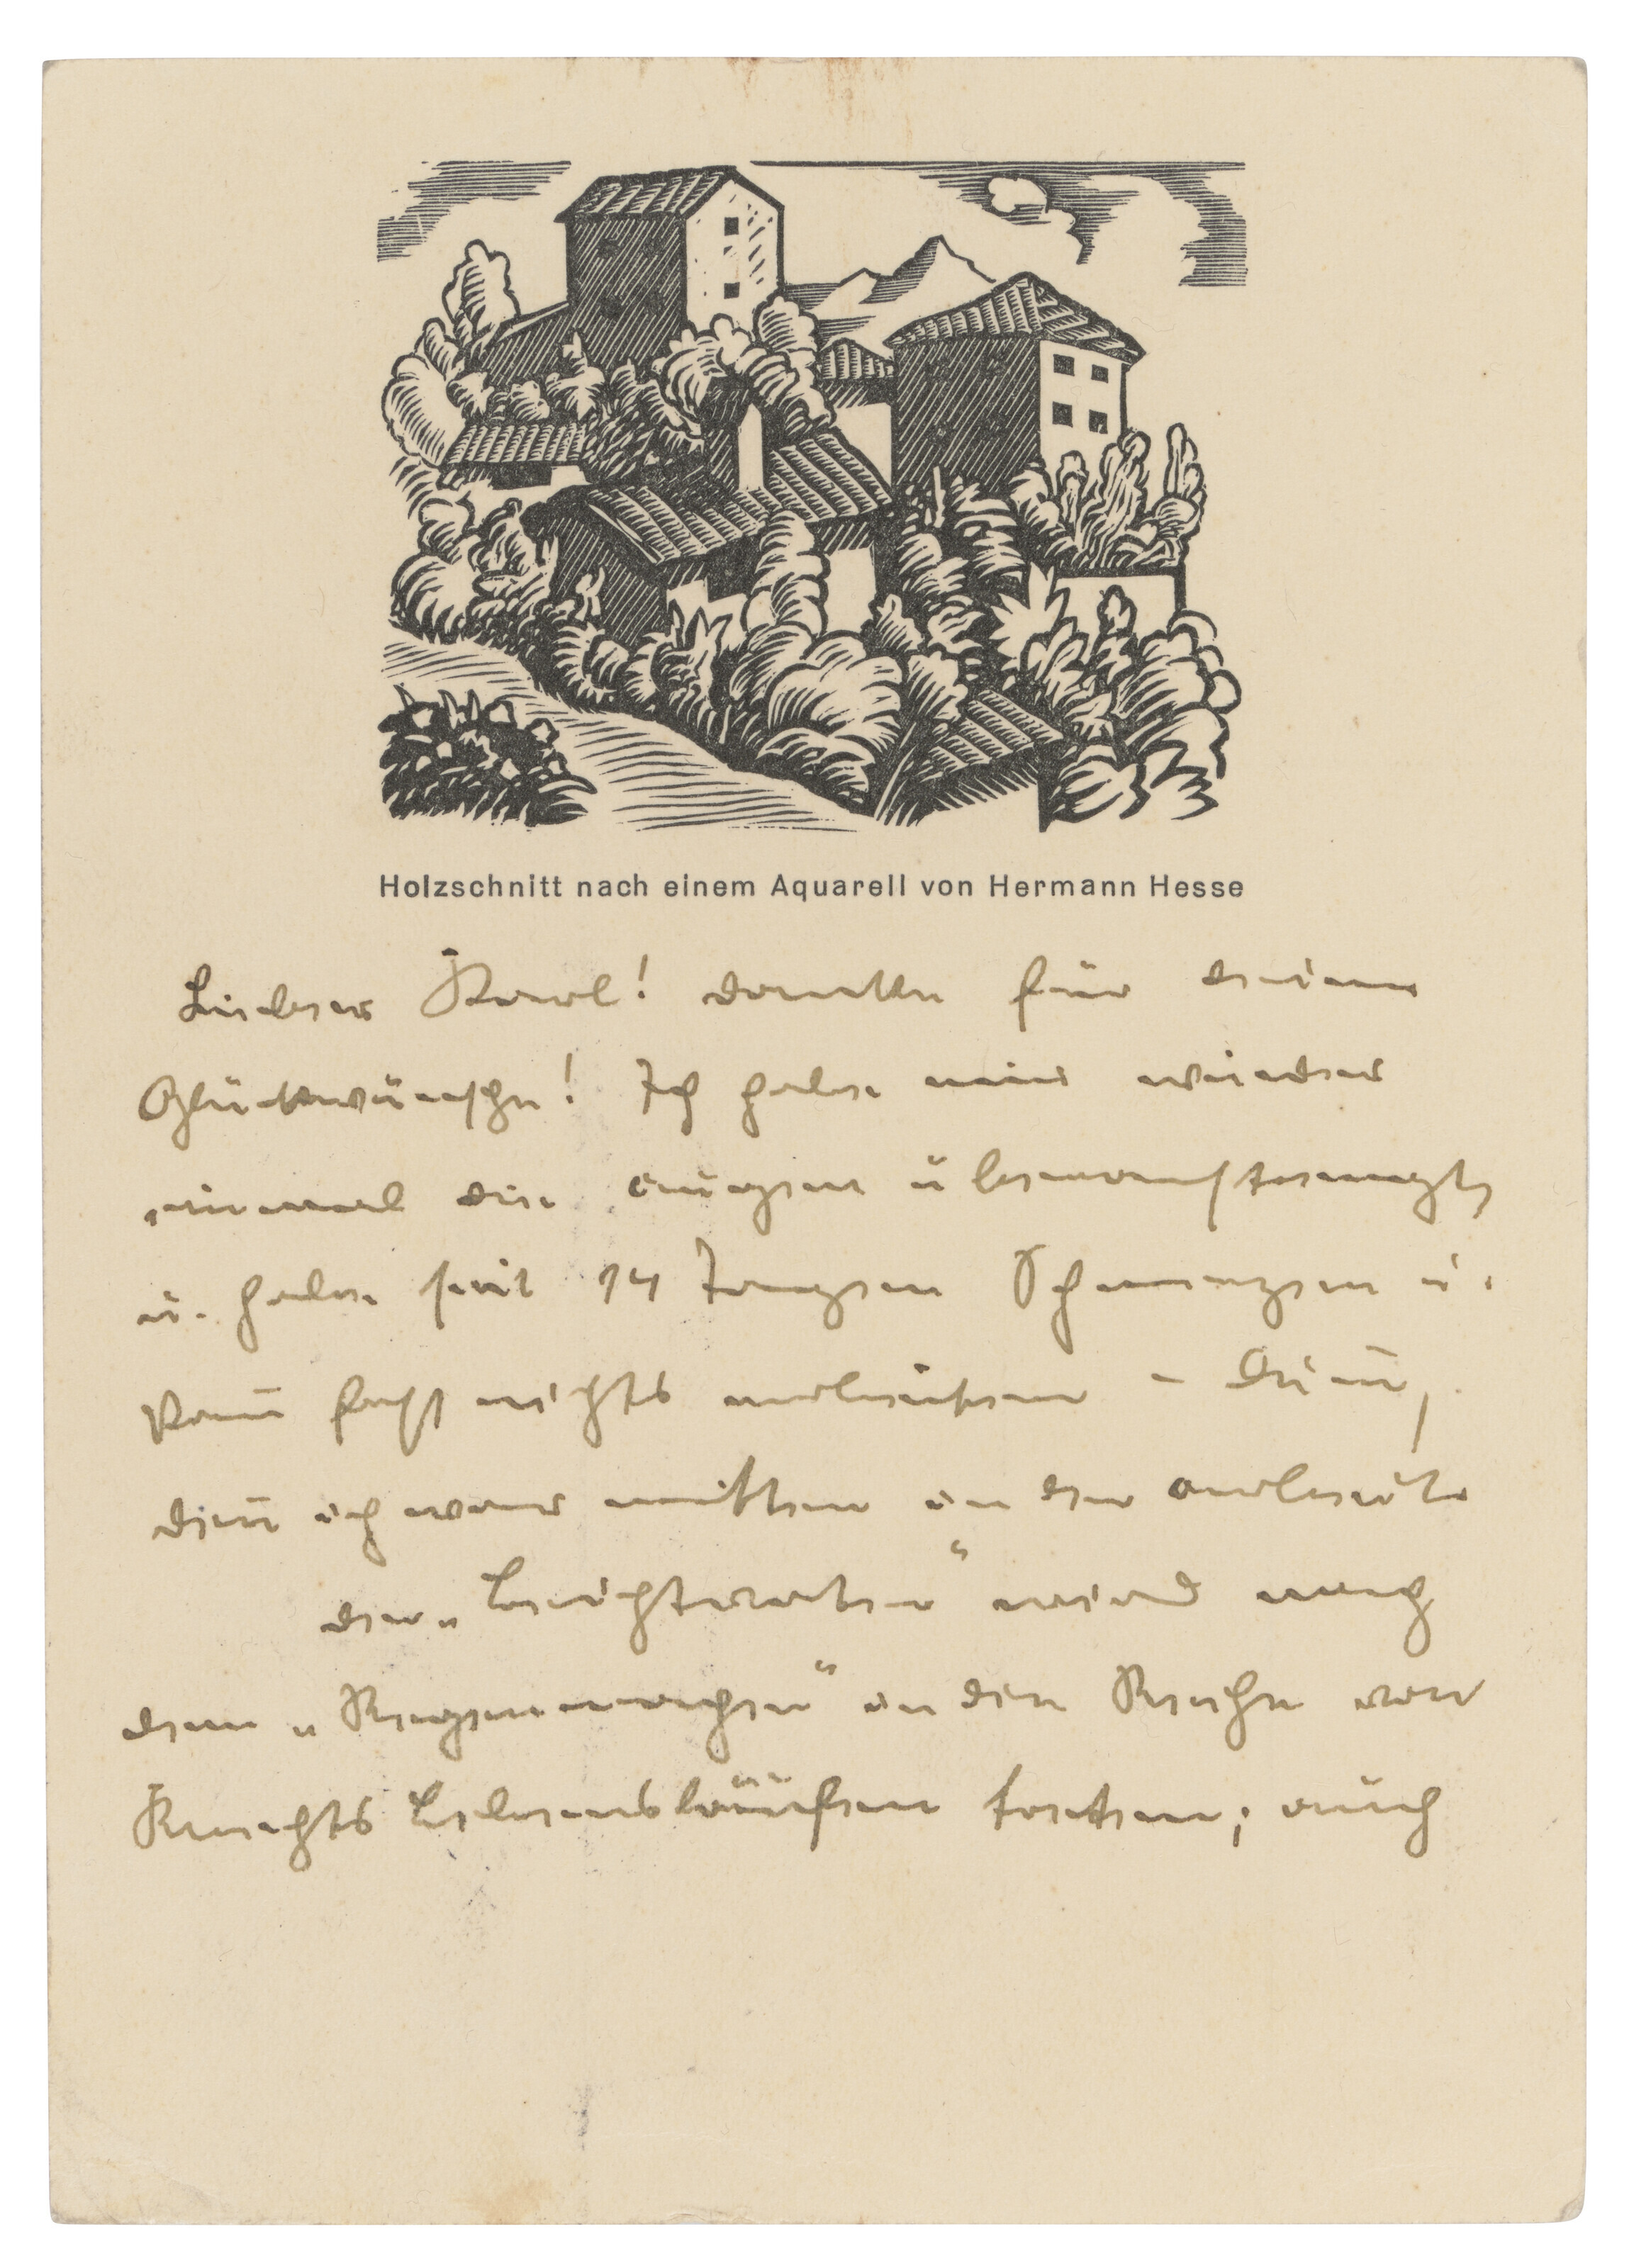 Holzschnitt nach einem Aquarell von Hermann Hesse
Lieber Karl! danke für deine
Glückwünsche! Ich habe mir wieder
einmal die augen überanstrengt,
u. habe seit 14 Tagen Schmerzen u.
kann fast nichts arbeiten – Dumm,
denn ich war mitten in der arbeit.
der „Beichtvater“ wird nach
dem „Regenmacher“ in die Reihe von
Knechts Lebensläufen treten; auch